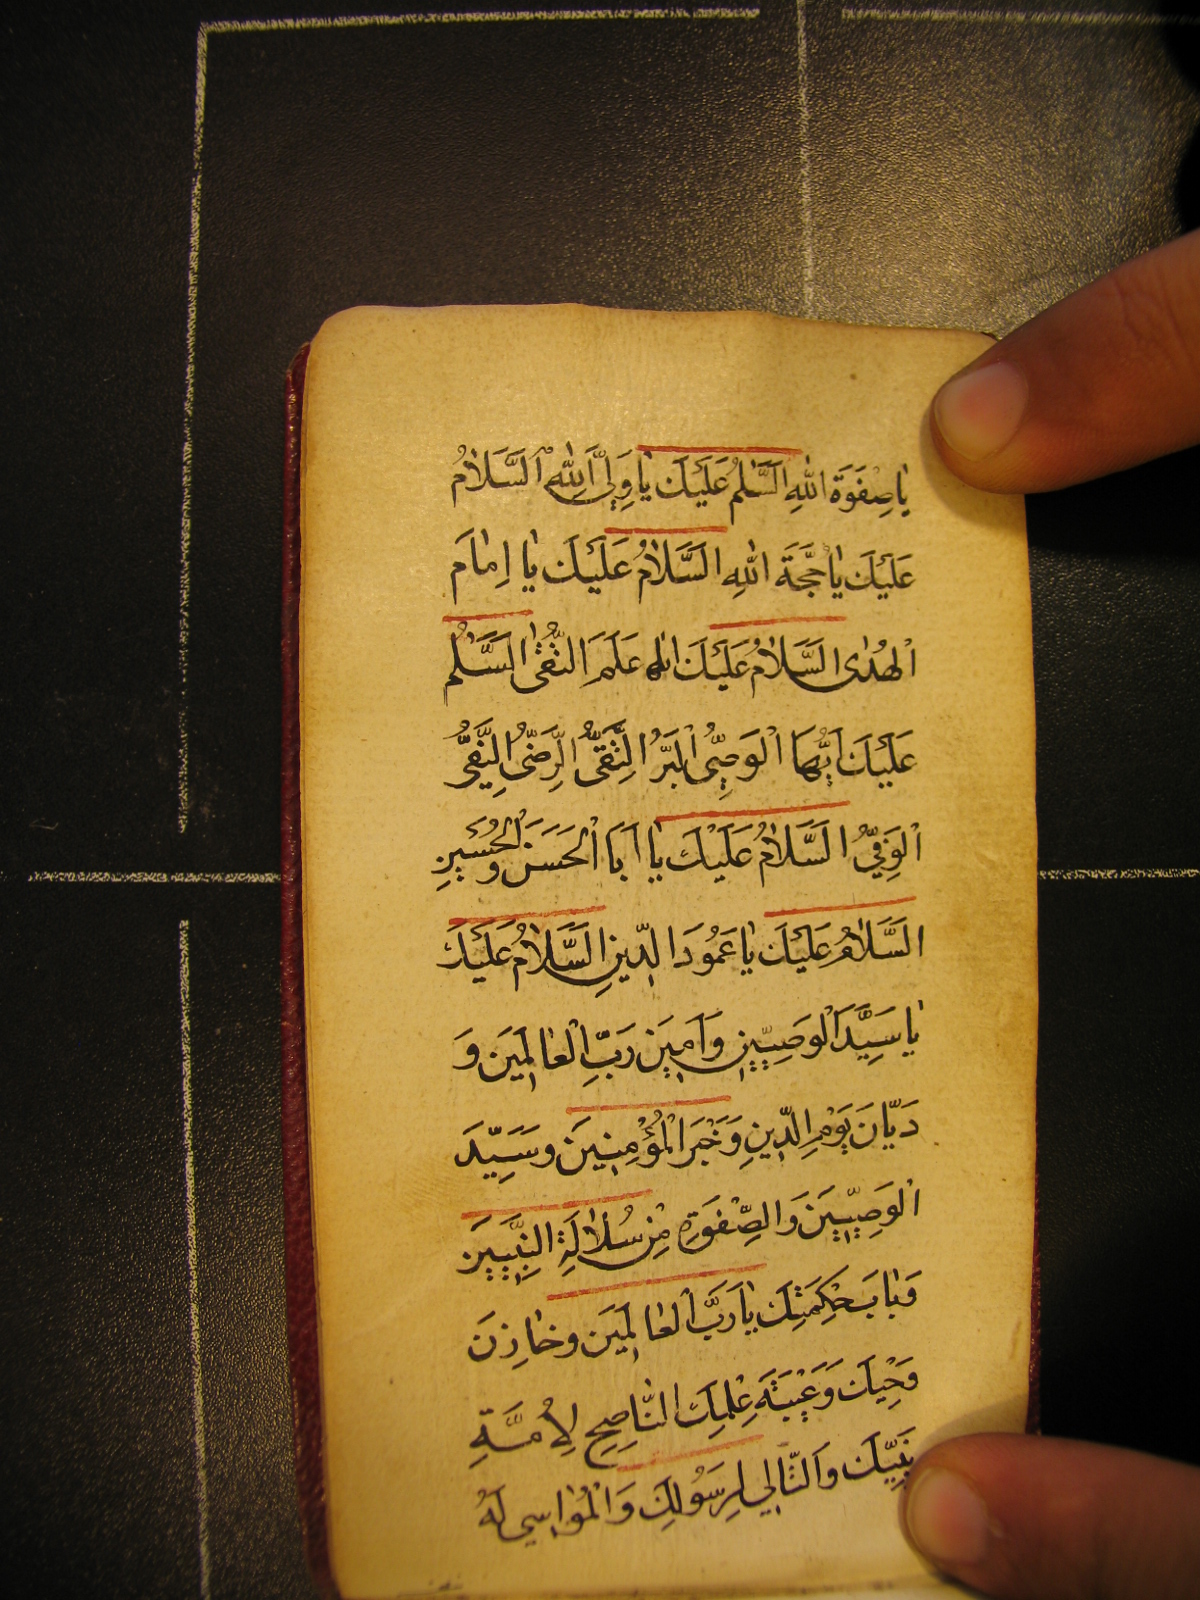 يٰا صِفْوَةَ اللهِ السَّلٰمُ عَلَيْكَ يٰا وَلِيَّ اللهِ اَلسَّلٰامُ
عَلَيْكَ يٰا حُجَّةَ اللهِ السَّلٰامُ عَلَيْكَ يٰا اِمٰامَ
الْهُدٰى السَّلٰامُ عَلَيْكَ يا عَلَمَ التُّقٰى السَّلٰمُ
عَلَيْكَ اَيُّهَا الْوَصِيُّ الْبَرُّ التَّقِيُّ الرَّضِيُّ النَّقِيُّ
الْوَفِيُّ السَّلٰامُ عَلَيْكَ يٰا اَبَا الْحَسَنِ وَالْحُسَيْنِ
السَّلٰامُ عَلَيْكَ يٰا عَمُودَ الدّينِ السَّلٰامُ عَلَيْكَ
يٰا سَيِّدَ الْوَصِيّينَ وَاَمينَ رَبِّ الْعٰالَمينَ وَ
دَيّٰانَ يَوْمِ الدّينِ وَخَيْرَ الْمُؤْمِنينَ وَسَيِّدَ
الْوَصِيّينَ وَالصِّفْوَةِ مِنْ سُلٰالَةِ النَّبِيّينَ
وَبٰابَ حِكْمَتِكَ يٰا رَبَّ الْعٰالَمينَ وَخٰازِنَ
وَحْيِكَ وَعَيْبَةَ عِلْمِكَ النّٰاصِحِ لِاُمَّةِ
نَبِيِّكَ وَالتّٰالي لِرَسُولِكَ وَالْمُوٰاسي لَهُ